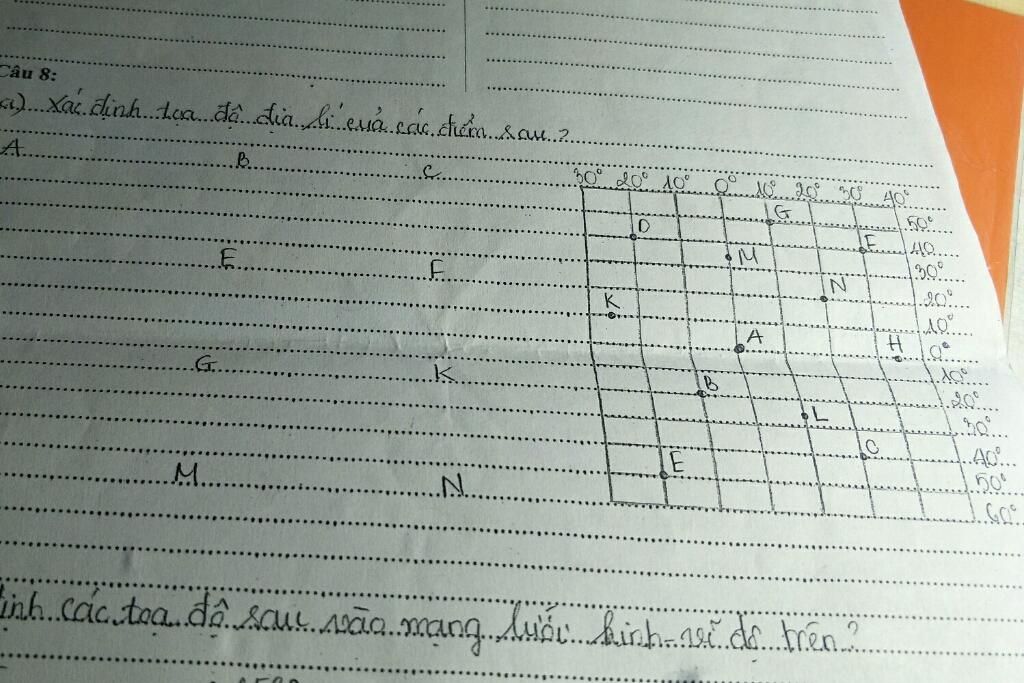 Câu 8:
a) Xác định tọa độ địa lí của các điểm sau?
A B C
30° 20° 10° 0° 10° 20° 30° 40°
G 50°
D E 40
E F M 30°
N 20°
K 10°
A H 0°
G K 10°
B 20°
L 30°
C 40°
M N E 50°
60°
các tọa độ sau vào mạng lưới kinh-vĩ độ trên?